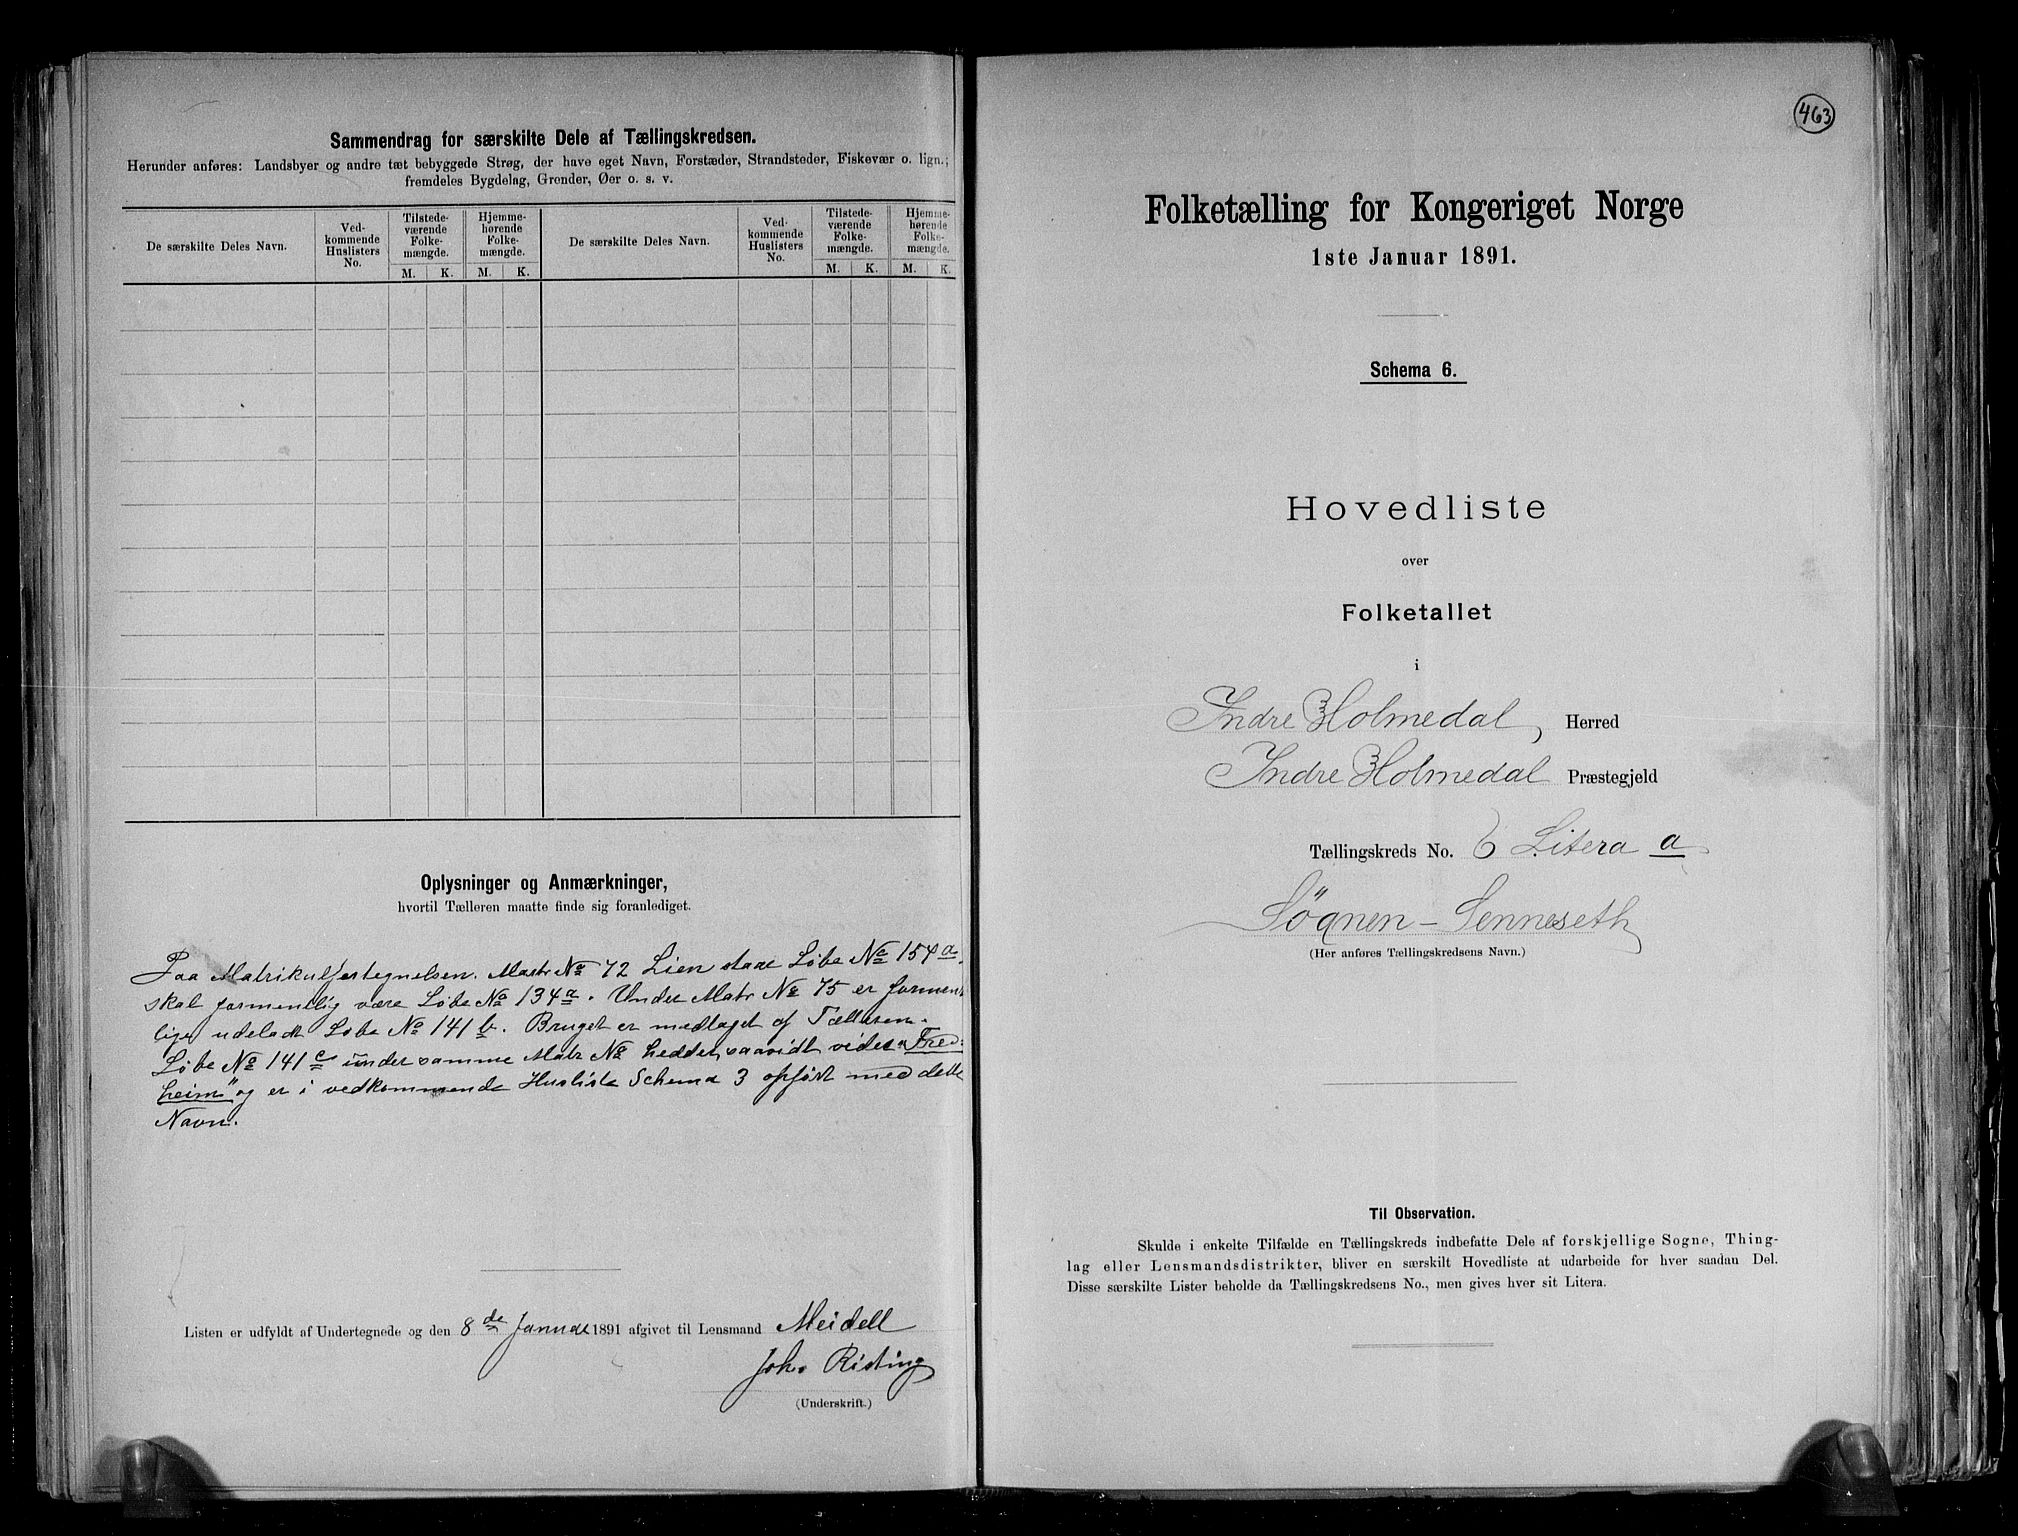 Sammendrag for særskilte Dele af Tællingskredsen.
Herunder anføres: Landsbyer og andre tæt bebyggede Strøg, der have eget Navn, Forstæder, Strandsteder, Fiskevær o. lign.;
fremdeles Bygdelag, Grender, Øer o. s. v.
De særskilte Deles Navn.
Ved-
kommende
Huslisters
No.
Tilstede-
værende
Folke-
mængde.
M. K.
Hjemme-
hørende
Folke-
mængde.
M. K.
De særskilte Deles Navn.
Ved-
kommende
Huslisters
No.
Tilstede-
værende
Folke-
mængde.
M. K.
Hjemme-
hørende
Folke-
mængde.
M. K.
Oplysninger og Anmærkninger,
hvortil Tælleren maatte finde sig foranlediget.
Paa Matrikulfortegnelsen. Matr No 72 Lien staar Løbe No 154 a.
skal formentlig være Løbe No 134 a. Under Matr No 75 er formen-
lige udeladt Løbe No 141 b. Bruget er medtaget af Tælleren.
Løbe No 141 c under samme Matr No hedder, saavidt vides "Fred-
heim" og er i vedkommende Husliste Schema 3 opført med dette
Navn.
Listen er udfyldt af Undertegnede og den 8de Januar 1891 afgivet til Lensmand Meidell
Joh. Risting
(Underskrift.)
463
Folketælling for Kongeriget Norge
1ste Januar 1891.
Schema 6.
Hovedliste
over
Folketallet
i
Indre Holmedal, Herred
Indre Holmedal Præstegjeld
Tællingskreds No. 6 Litera a
Søgnen - Senneseth
(Her anføres Tællingskredsens Navn.)
Til Observation.
Skulde i enkelte Tilfælde en Tællingskreds indbefatte Dele af forskjellige Sogne, Thing-
lag eller Lensmandsdistrikter, bliver en særskilt Hovedliste at udarbeide for hver saadan Del.
Disse særskilte Lister beholde da Tællingskredsens No., men gives hver sit Litera.